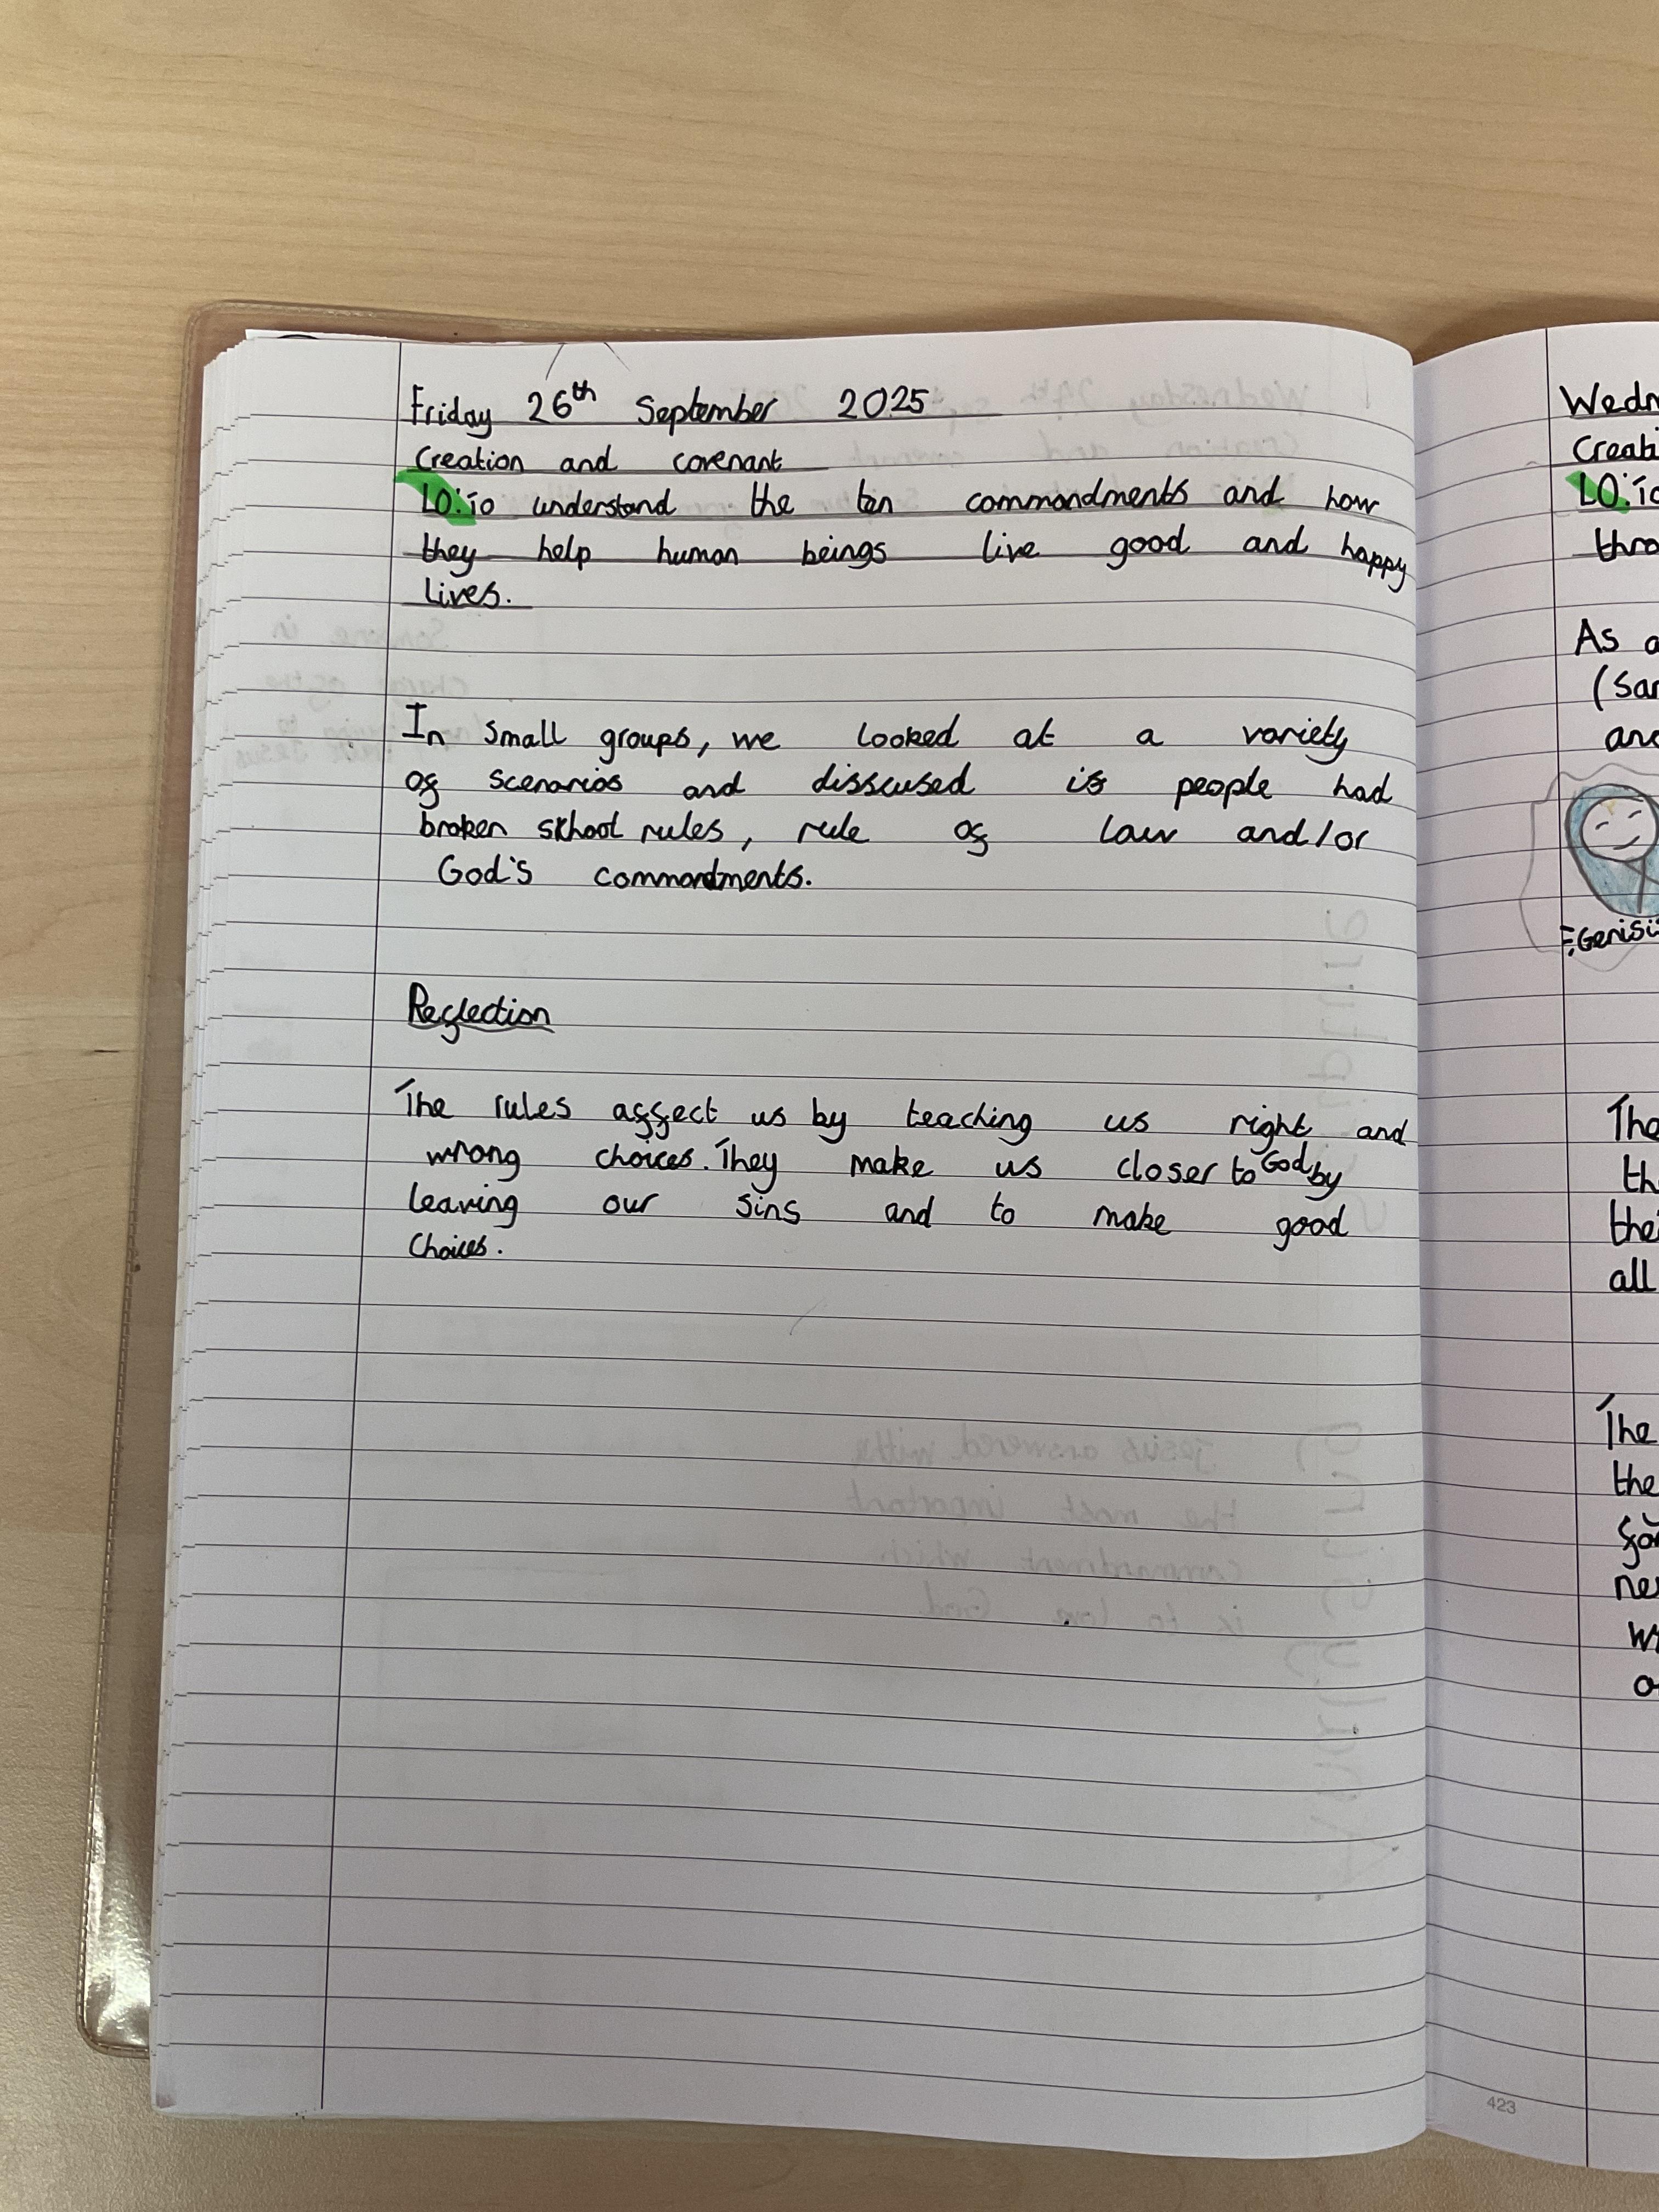 Friday 26th September 2025
Creation and covenant
LO: To understand the ten commandments and how
they help human beings live good and happy
lives.
In small groups, we looked at a variety
of scenarios and disscused if people had
broken school rules, rule of law and/or
God's commandments.
Reflection
The rules affect us by teaching us right and
wrong choices. They make us closer to God by
leaving our sins and to make good
choices.
Creati
LO: To
As a
(Sar
Genisi
The
the
all
The
the
423